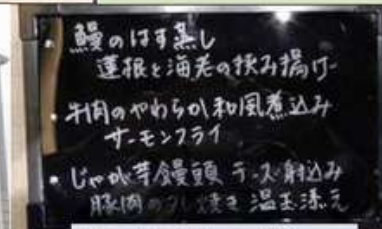 ・鰻のはす蒸し
蓮根と海老の挟み揚げ
・牛肉のやわらか和風煮込み
サーモンフライ
・じゃが芋饅頭 チーズ射込み
豚肉のタレ焼き 温玉添え